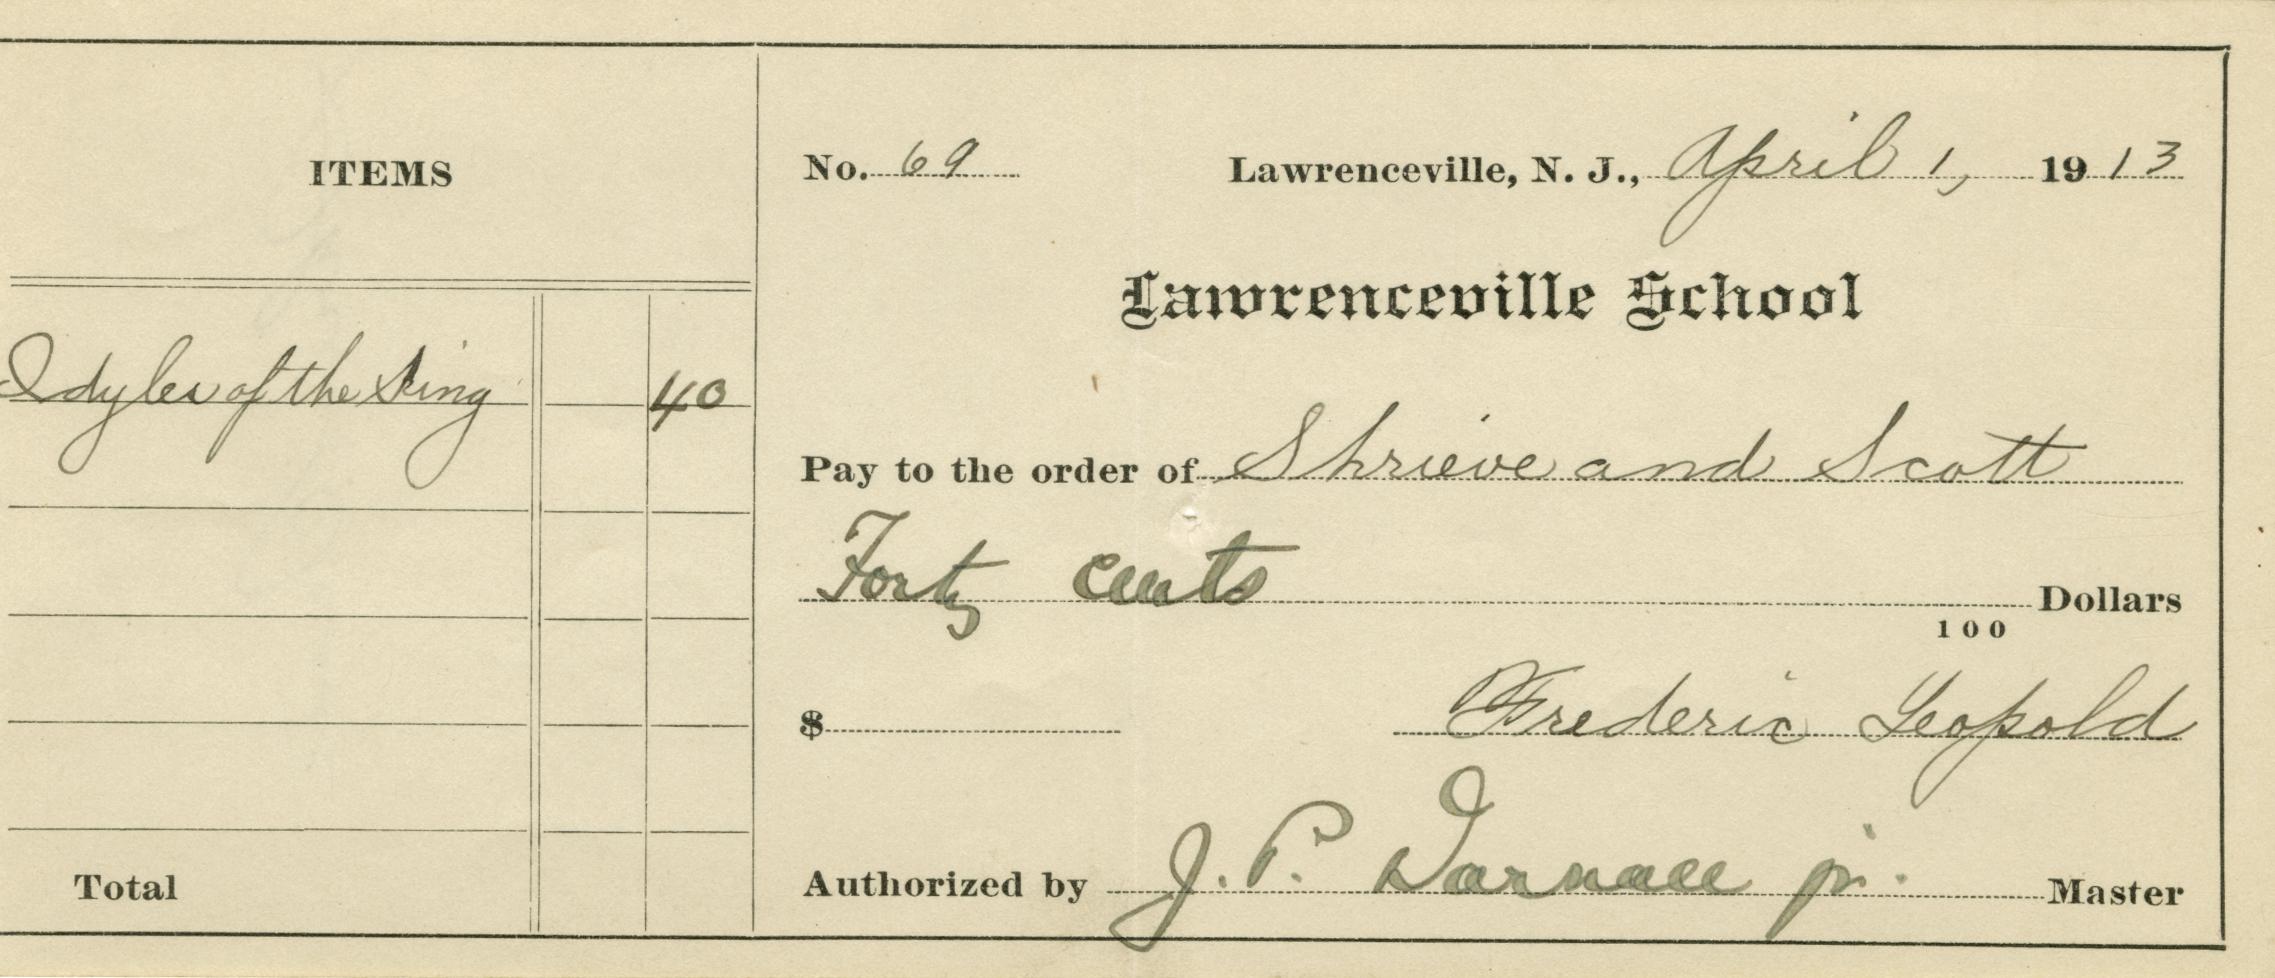 ITEMS
Idyles of the King 40
Total
No. 69 Lawrenceville, N. J., April 1, 1913
Lawrenceville School
Pay to the order of Shrieve and Scott
Forty cents Dollars
100
$ Frederic Leopold
Authorized by J. P. Darnall jr. Master